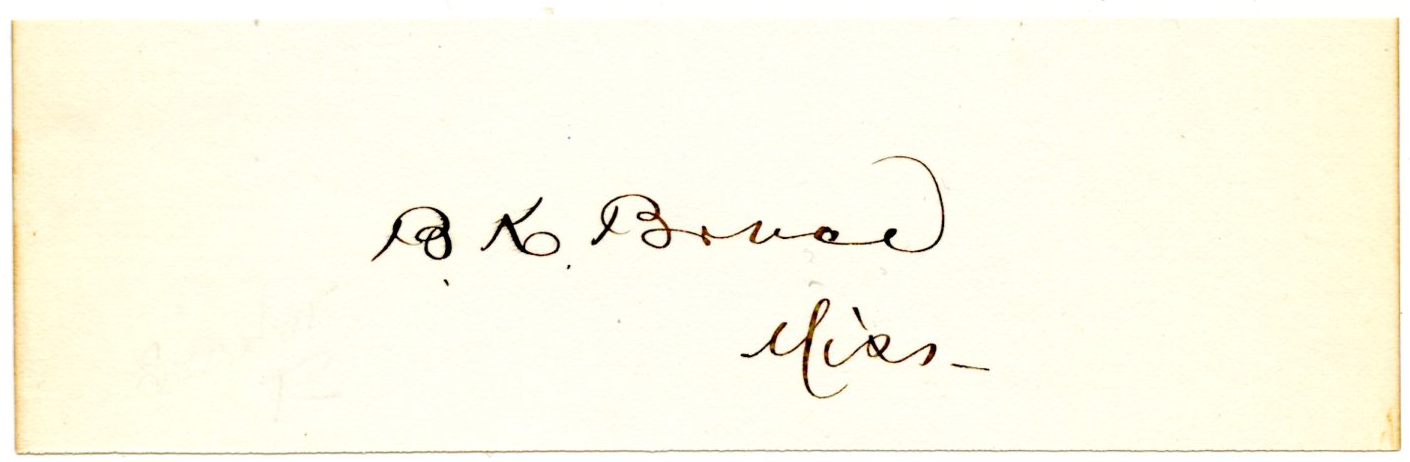 B. K. Bruce
Miss–